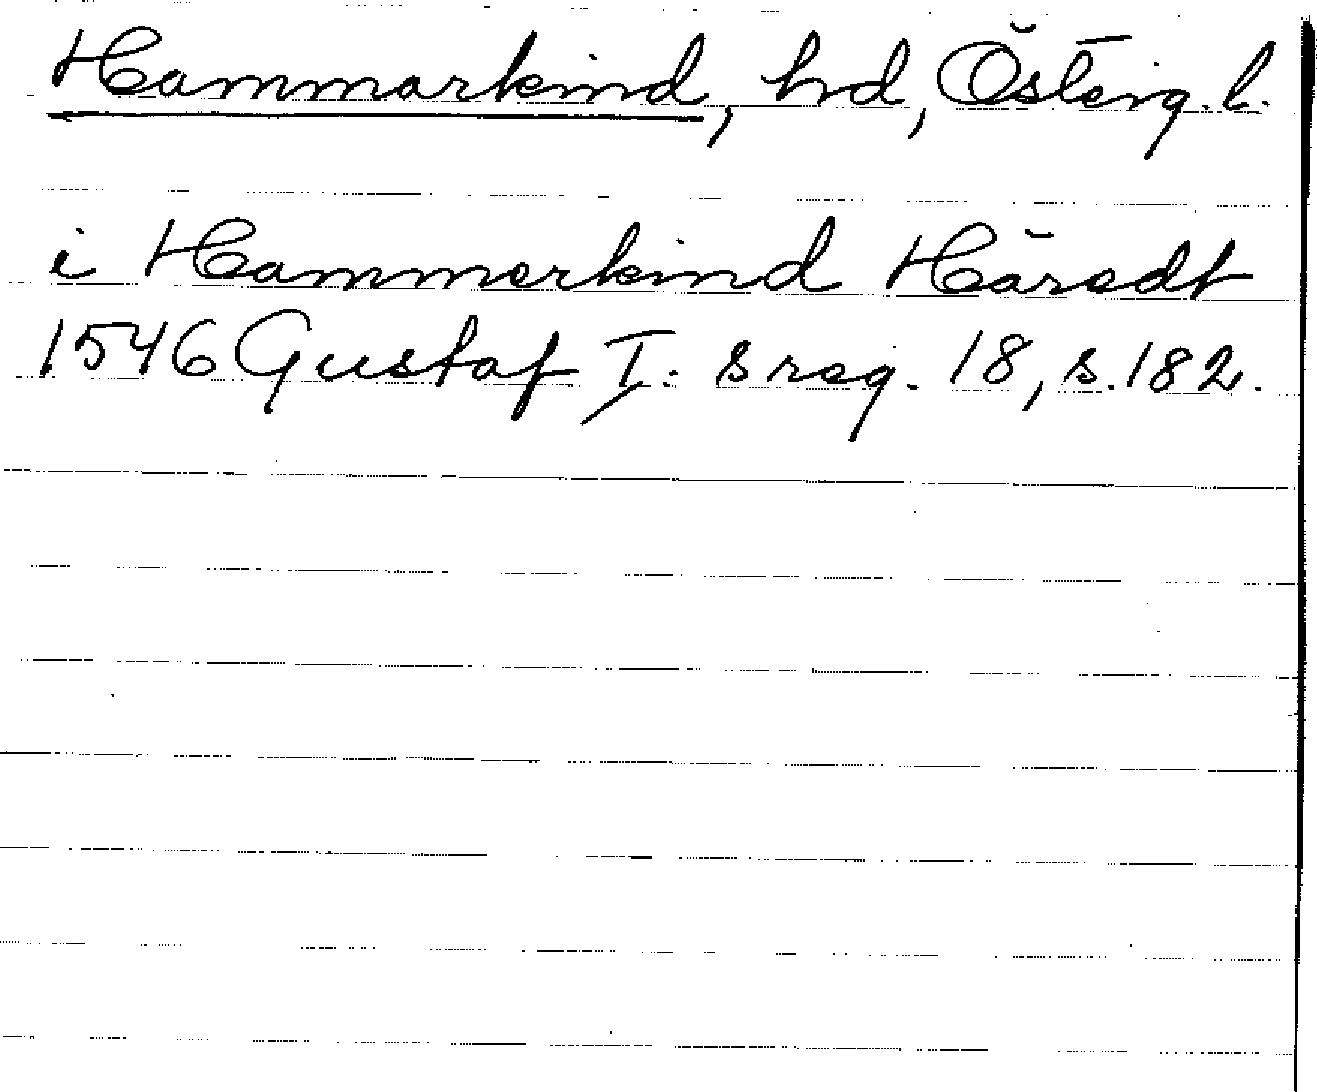 Hammarkind, hd, Österg. l.
i Hammerkind Häredt
1546 Gustaf I:s reg. 18, s. 182.